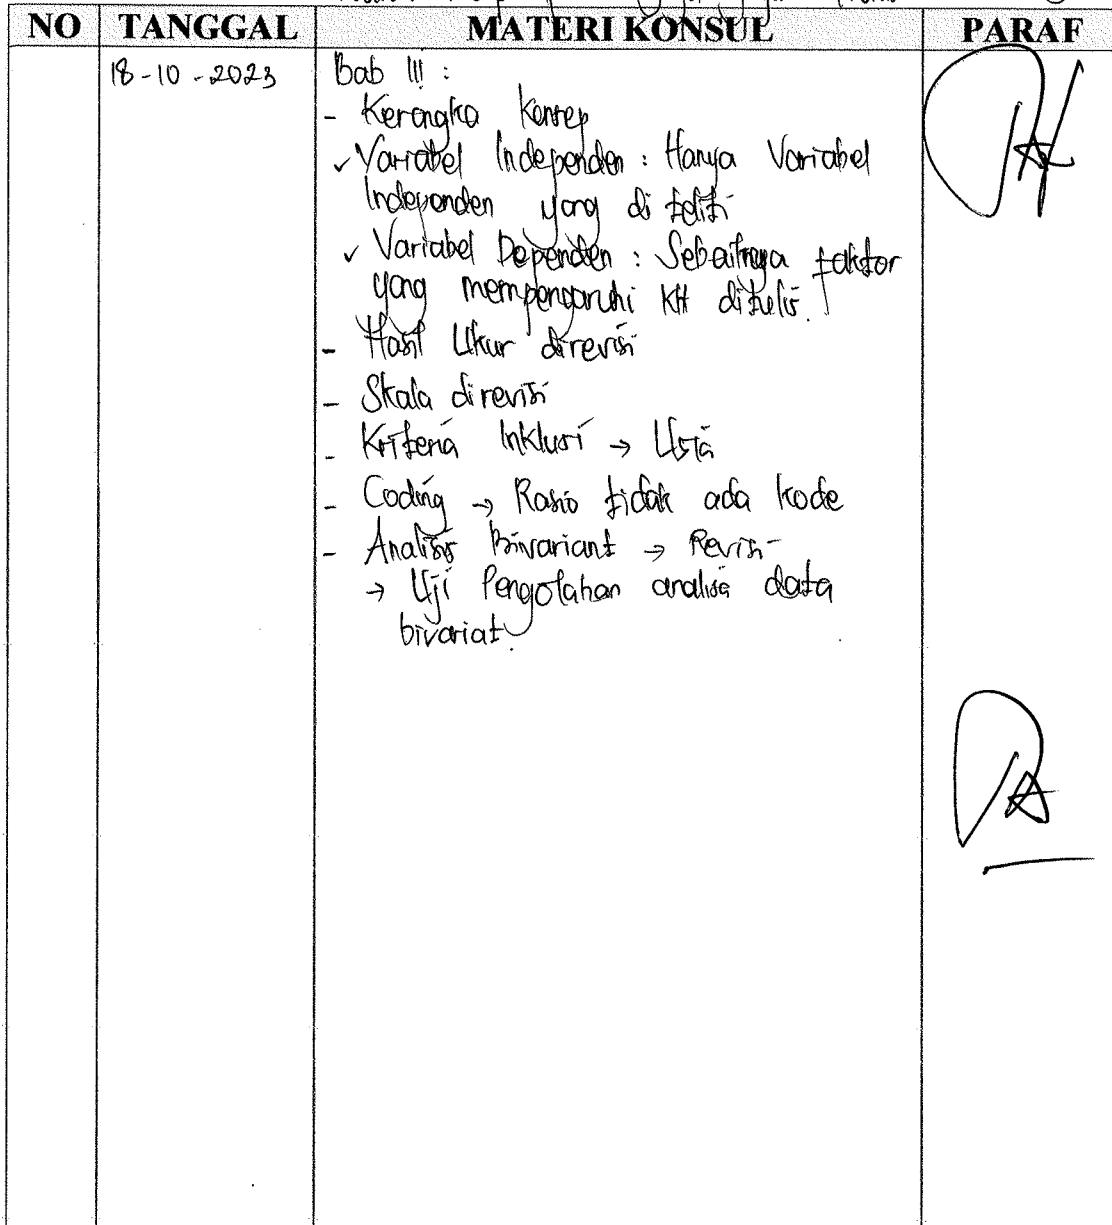 NO TANGGAL MATERI KONSUL PARAF
18-10-2023 Bab III :
- Kerangka Konsep
✓ Variabel Independen : Hanya Variabel
Independen yang di teliti
✓ Variabel Dependen : Sebaiknya faktor
yang mempengaruhi KH ditulis.
- Hasil Ukur direvisi
- Skala direvisi
- Kriteria Inklusi → Usia
- Coding → Rasio tidak ada kode
- Analisis Bivariant → Revisi
→ Uji Pengolahan analisa data
bivariat.